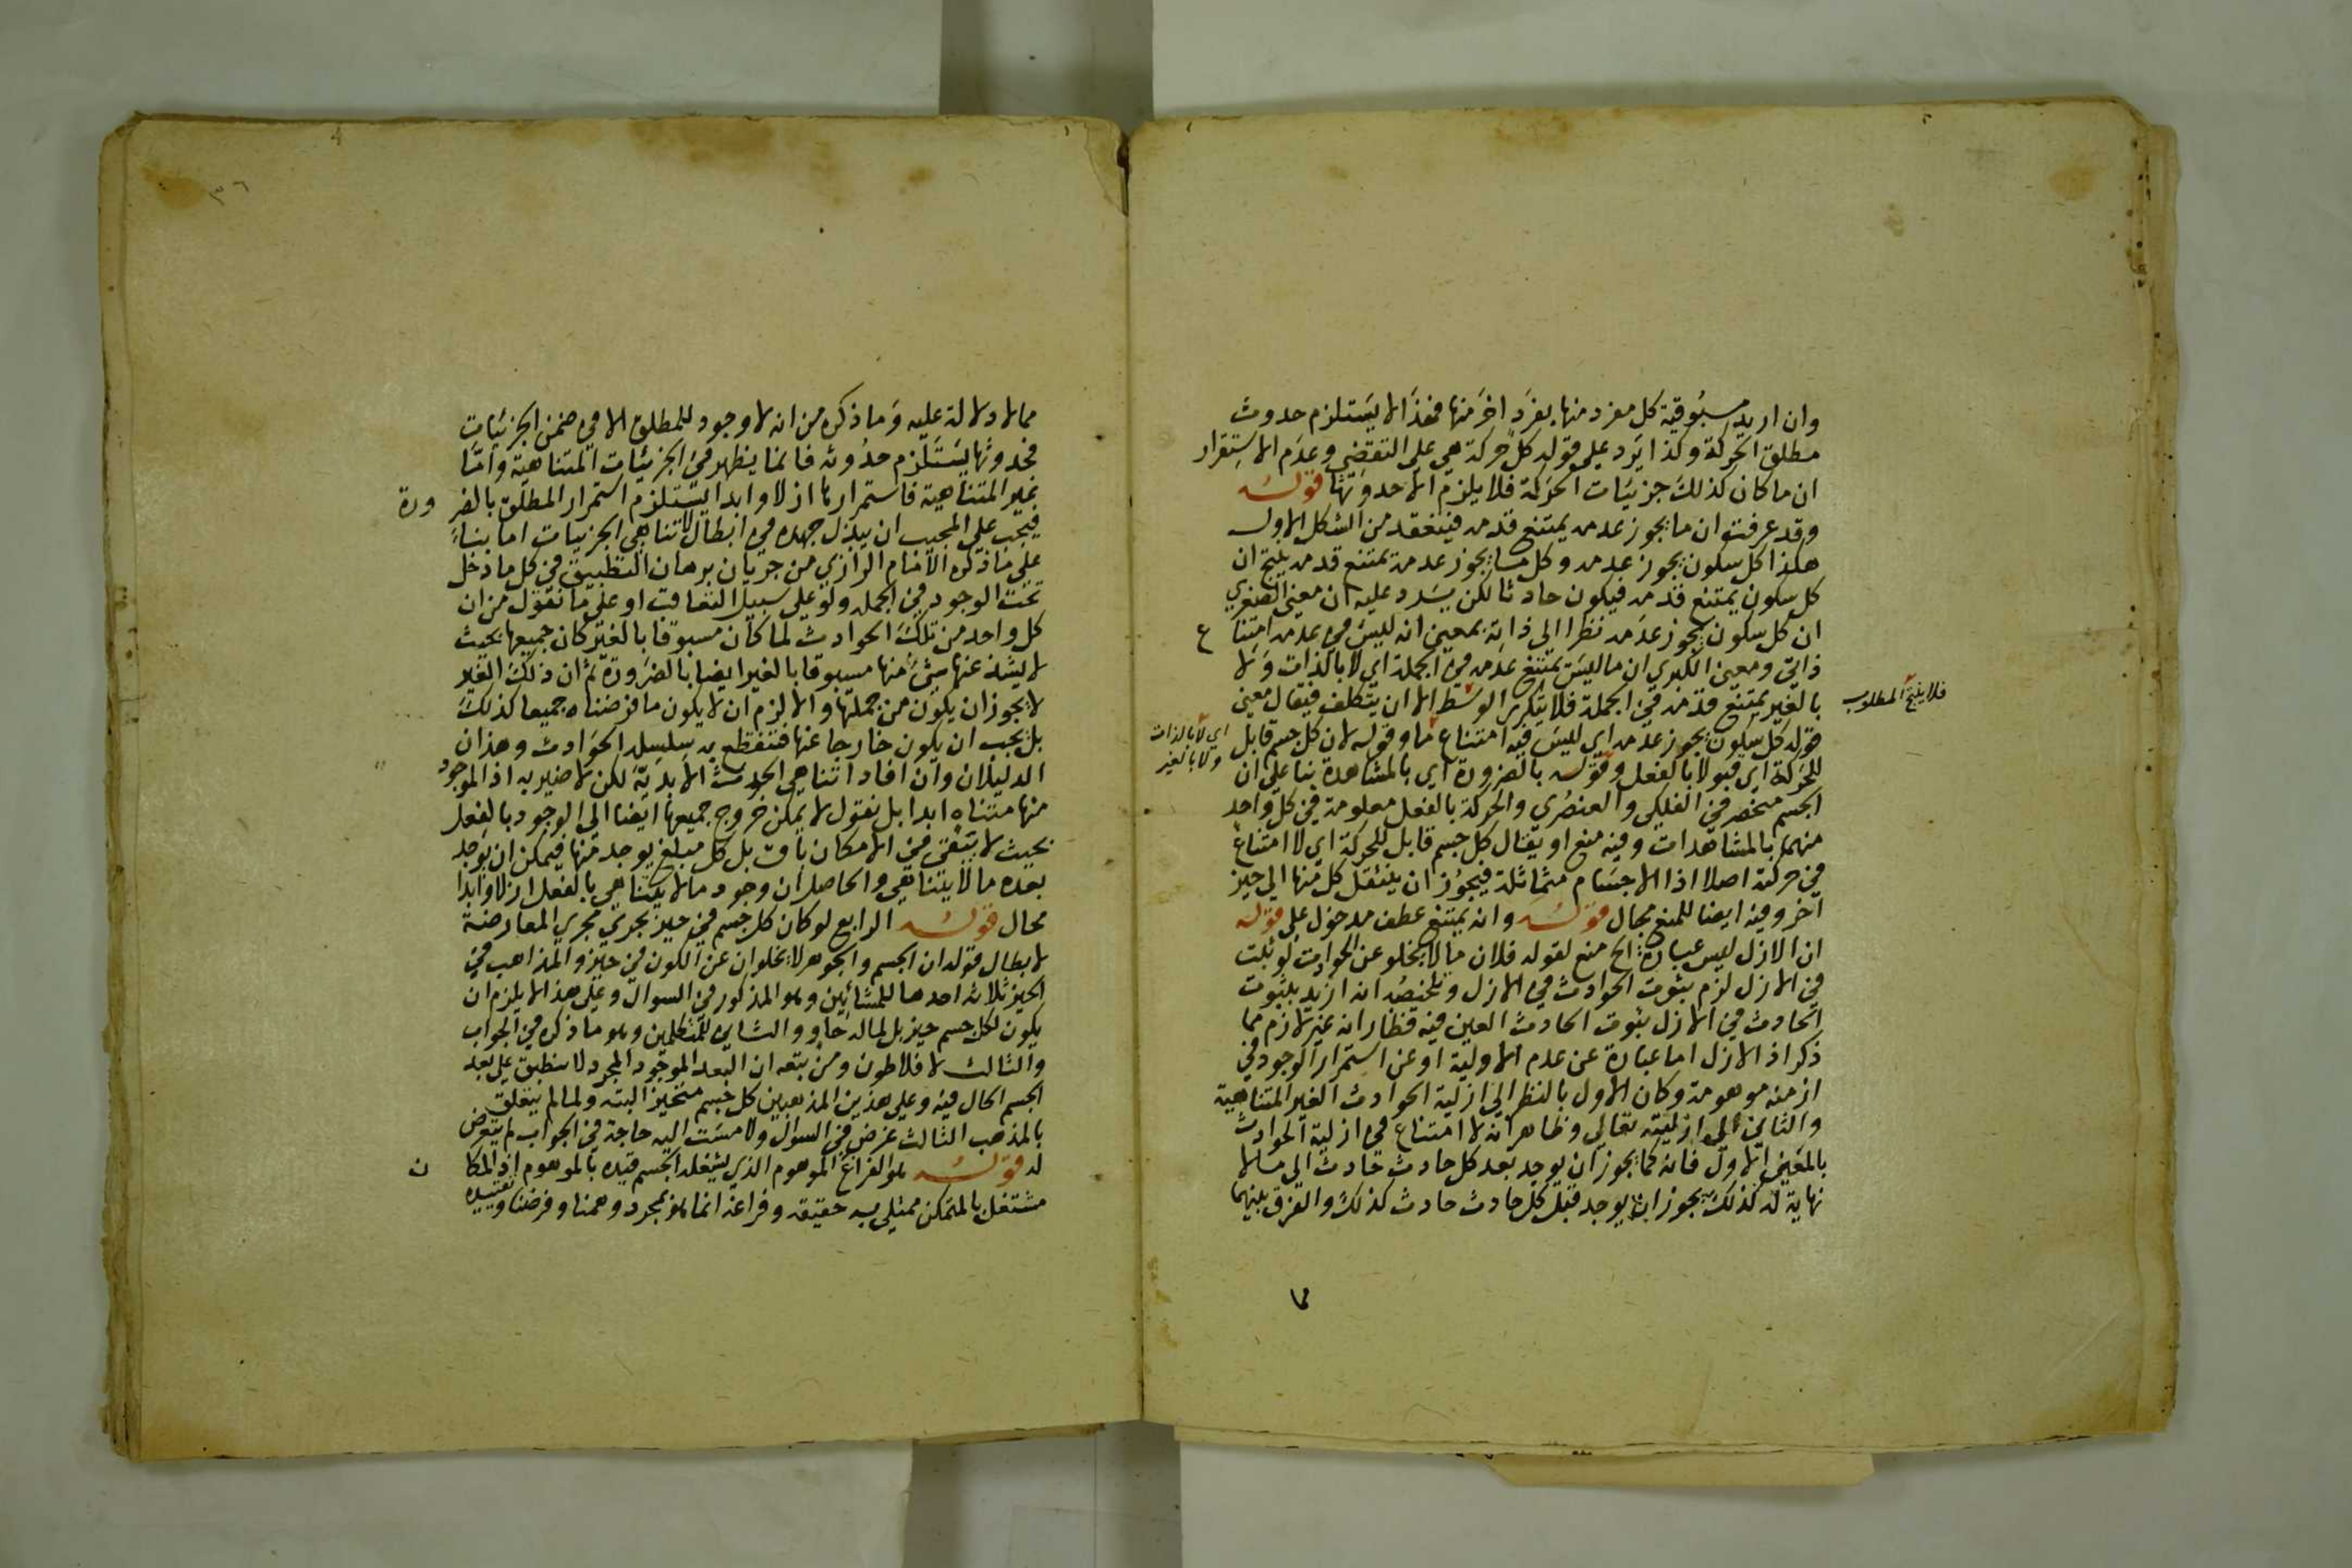 وان اريد مسبوقية كل مفرد منها بفرد اخر منها فهذا لا يستلزم حدوث
مطلق الحركة وكذا يرد على قوله كل حركة هي على التقضي وعدم الاستقرار
ان ما كان كذلك جزئيات الحركة فلا يلزم الا حدوثها قوله
وقد عرفت ان ما يجوز عدمه يمتنع قدمه فينعقد من الشكل الاول
هكذا كل سكون يجوز عدمه وكل ما يجوز عدمه يمتنع قدمه ينتج ان
كل سكون يمتنع قدمه فيكون حادثا لكن يرد عليه ان معنى الصغرى
ان كل سكون يجوز عدمه نظرا الى ذاته بمعنى انه ليس في عدمه امتناع
ذاتي ومعنى الكبرى ان ما ليس يمتنع عدمه في الجملة اي لا بالذات ولا
بالغير يمتنع قدمه في الجملة فلا يتكرر الوسط الا ان يتكلف فيقال معنى
فلا ينتج المطلوب
قوله كل سكون يجوز عدمه اي ليس فيه امتناع ما وقوله لان كل جسم قابل
اي لا بالذات
ولا بالغير
للحركة اي قبولا بالفعل وقوله بالضرورة اي بالمشاهدة بنا على ان
الجسم منحصر في الفلكي والعنصري والحركة بالفعل معلومة في كل واحد
منهما بالمشاهدات وفيه منع او يقال كل جسم قابل للحركة اي لا امتناع
في حركته اصلا اذ الاجسام متماثلة فيجوز ان ينتقل كل منها الى حيز
اخر وفيه ايضا للمنع مجال قوله وانه يمتنع عطف مدخول على قوله
ان الازل ليس عبارة الخ منع لقوله فلان ما لا يخلو عن الحوادث لو ثبت
في الازل لزم ثبوت الحوادث في الازل وتلخيصه انه ان اريد بثبوت
الحادث في الازل ثبوت الحادث المعين فيه فظاهر انه غير لازم مما
ذكر اذ الازل اما عبارة عن عدم الاولية او عن استمرار الوجود في
ازمنه موهومة وكان الاول بالنظر الى ازلية الحوادث الغير المتناهية
والثاني الى ازليته تعالى وظاهر انه لا امتناع في ازلية الحوادث
بالمعنى الاول فانه كما يجوز ان يوجد بعد كل حادث حادث الى ما لا
نهاية له كذلك يجوز ان يوجد قبل كل حادث حادث كذلك والفرق بينهما
مما
٣٦
مما لا دلالة عليه وما ذكره من انه لا وجود للمطلق الا في ضمن الجزئيات
فحدوثها يستلزم حدوثه فانما يظهر في الجزئيات المتناهية واما
غير المتناهية فاستمرارها ازلا وابدا يستلزم استمرار المطلق بالضرورة
فيجب على المجيب ان يبذل جهده في ابطال لا تناهي الجزئيات اما بناء
على ما ذكره الامام الرازي من جريان برهان التطبيق في كل ما دخل
تحت الوجود في الجملة ولو على سبيل التعاقب او على ما نقول من ان
كل واحد من تلك الحوادث لما كان مسبوقا بالغير كان جميعها بحيث
لا يشذ عنها شئ منها مسبوقا بالغير ايضا بالضرورة ثم ان ذلك الغير
لا يجوز ان يكون من جملتها والا لزم ان لا يكون ما فرضناه جميعا كذلك
بل يجب ان يكون خارجا عنها فتنقطع به سلسلة الحوادث وهذان
الدليلان وان افادا تناهي الحوادث الابدية لكن لا ضير به اذ الموجود
منها متناه ابدا بل نقول لا يمكن خروج جميعها ايضا الى الوجود بالفعل
بحيث لا يبقى في الامكان باق بل كل مبلغ يوجد منها فيمكن ان يوجد
بعده ما لا يتناهى والحاصل ان وجود ما لا يتناهى بالفعل ازلا وابدا
محال قوله الرابع لو كان كل جسم في حيز يجري مجرى المعارضة
لابطال قوله ان الجسم والجوهر لا يخلوان عن الكون في حيز والمذاهب في
الحيز ثلاثة احدها للمشائين وهو المذكور في السوال وعلى هذا لا يلزم ان
يكون لكل جسم حيز بل لما له حاو والثاني للمتكلمين وهو ما ذكره في الجواب
والثالث لافلاطون ومن تبعه ان البعد الموجود المجرد لا ينطبق على بعد
الجسم الحال فيه وعلى هذين المذهبين كل جسم متحيز البتة ولما لم يتعلق
بالمذهب الثالث غرض في السوال ولا مست اليه حاجة في الجواب لم يتعرض
له قوله هو الفراغ الموهوم الذي يشغله الجسم قيده بالموهوم اذ المكان
مشتغل بالمتمكن ممتلئ به حقيقة وفراغه انما هو بمجرد وهمنا وفرضنا وتقييده